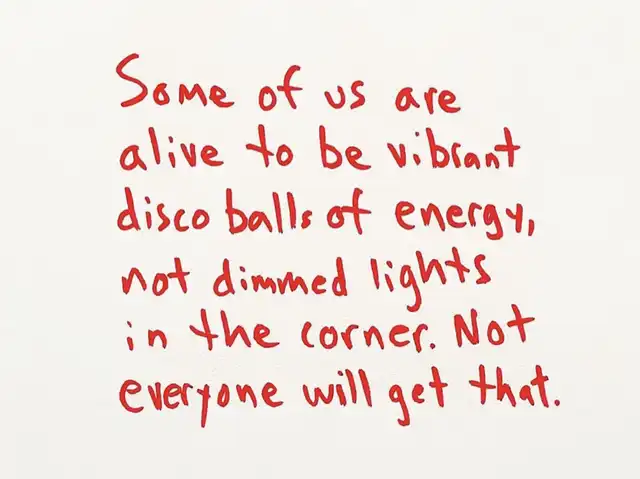 Some of us are
alive to be vibrant
disco balls of energy,
not dimmed lights
in the corner. Not
everyone will get that.